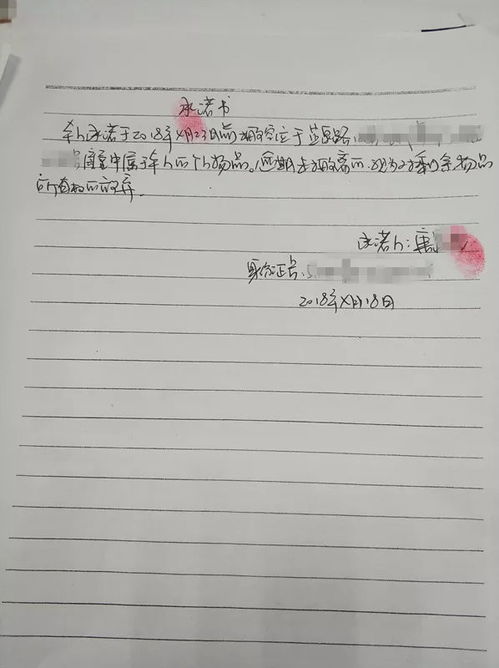 承诺书
本人承诺于2018年4月23日前搬空位于蓝
房屋中属于本人的个人物品。逾期未搬离的,视为对剩余物品
所有权的放弃.
承诺人:唐
身份证号:5
2018年4月18日